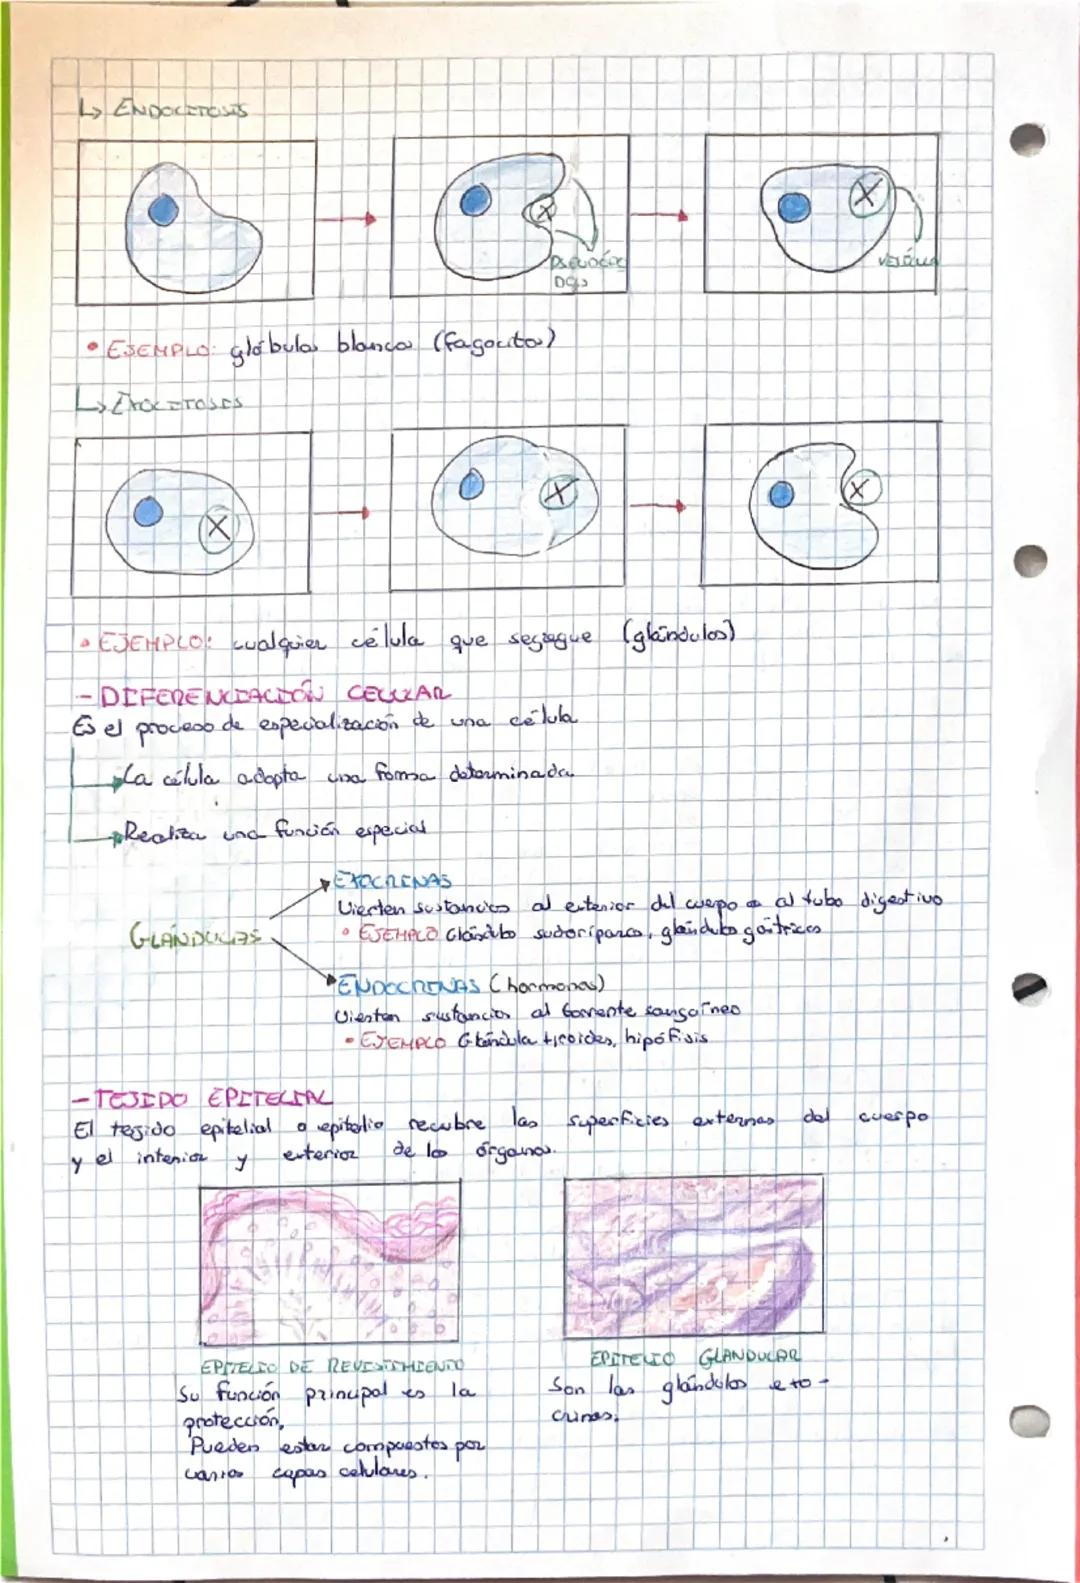 ↳ ENDOCITOSIS
PSEUDÓPO
DOS
VESÍCULA
• EJEMPLO: glóbulos blancos (fagocitos)
↳ EXOCITOSIS
• EJEMPLO: cualquier célula que segregue (glándulas)
- DIFERENCIACIÓN CELULAR
Es el proceso de especialización de una célula
La célula adopta una forma determinada.
Realiza una función especial
EXOCRINAS
Vierten sustancias al exterior del cuerpo o al tubo digestivo
• EJEMPLO Glándula sudoríparas, glándulas gástricas
GLÁNDULAS
ENDOCRINAS (hormonas)
Vierten sustancias al torrente sanguíneo
• EJEMPLO Glándula tiroides, hipófisis
- TEJIDO EPITELIAL
El tejido epitelial o epitelio recubre las superficies externas del cuerpo
y el interior y exterior de los órganos.
EPITELIO DE REVESTIMIENTO
Su función principal es la
protección,
Pueden estar compuestos por
varias capas celulares.
EPITELIO GLANDULAR
Son las glándulas exo-
crinas.